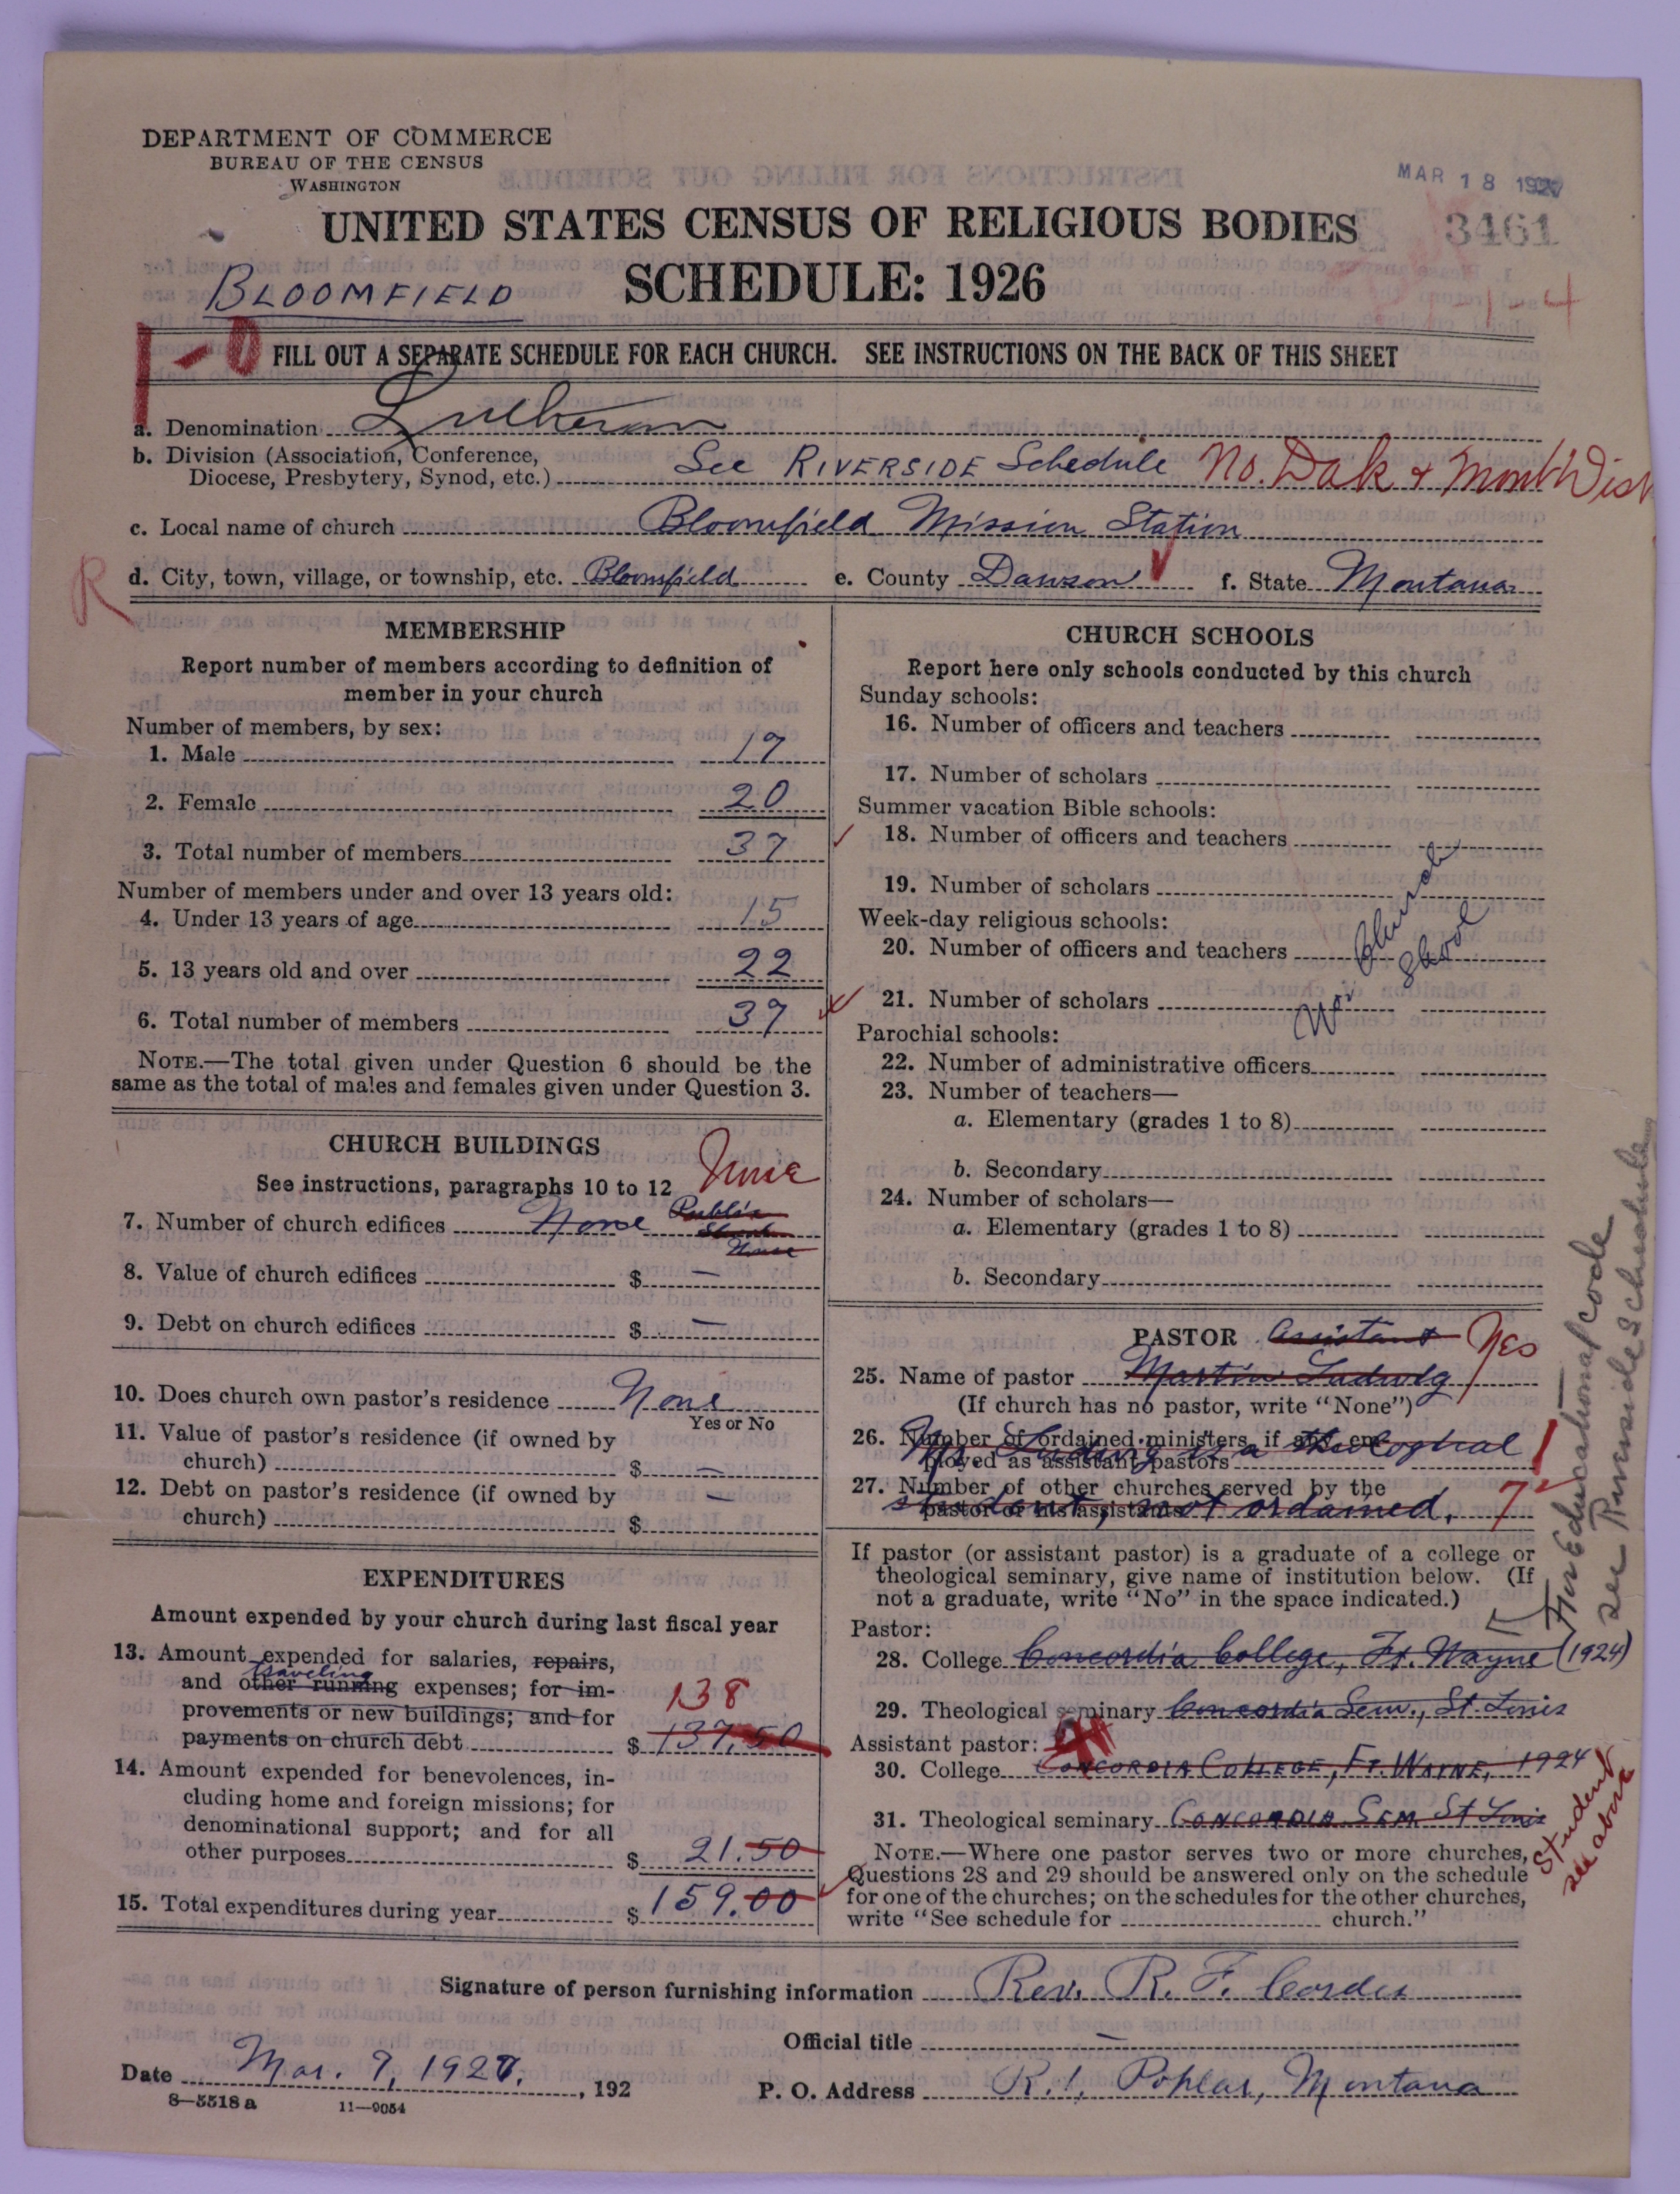 DEPARTMENT OF COMMERCE
BUREAU OF THE CENSUS
WASHINGTON
MAR 18 1927
UNITED STATES CENSUS OF RELIGIOUS BODIES
3461
BLOOMFIELD
SCHEDULE: 1926
1-4
1-0
FILL OUT A SEPARATE SCHEDULE FOR EACH CHURCH. SEE INSTRUCTIONS ON THE BACK OF THIS SHEET
a. Denomination Lutheran
b. Division (Association, Conference,
Diocese, Presbytery, Synod, etc.) See RIVERSIDE Schedule No. Dak & Mont Dist
c. Local name of church Bloomfield Mission Station
R
d. City, town, village, or township, etc. Bloomfield e. County Dawson f. State Montana
MEMBERSHIP
Report number of members according to definition of
member in your church
Number of members, by sex:
1. Male 17
2. Female 20
3. Total number of members 37
Number of members under and over 13 years old:
4. Under 13 years of age 15
5. 13 years old and over 22
6. Total number of members 37
NOTE.—The total given under Question 6 should be the
same as the total of males and females given under Question 3.
CHURCH BUILDINGS
See instructions, paragraphs 10 to 12 None
7. Number of church edifices None Public
8. Value of church edifices $ —
9. Debt on church edifices $ —
10. Does church own pastor's residence None
Yes or No
11. Value of pastor's residence (if owned by
church) $ —
12. Debt on pastor's residence (if owned by
church) $ —
EXPENDITURES
Amount expended by your church during last fiscal year
13. Amount expended for salaries, repairs,
traveling
and other running expenses; for im-
provements or new buildings; and for
138
payments on church debt $ 137.50
14. Amount expended for benevolences, in-
cluding home and foreign missions; for
denominational support; and for all
other purposes $ 21.50
15. Total expenditures during year $ 159.00
CHURCH SCHOOLS
Report here only schools conducted by this church
Sunday schools:
16. Number of officers and teachers
17. Number of scholars
Summer vacation Bible schools:
18. Number of officers and teachers
19. Number of scholars
Week-day religious schools:
20. Number of officers and teachers
21. Number of scholars
No Church School
Parochial schools:
22. Number of administrative officers
23. Number of teachers—
a. Elementary (grades 1 to 8)
b. Secondary
24. Number of scholars—
a. Elementary (grades 1 to 8)
b. Secondary
PASTOR Assistant Yes
25. Name of pastor Martin Ludwig
(If church has no pastor, write "None")
26. Number of ordained ministers, if any, em-
ployed as assistant pastors
Mr. Ludwig is a theological
27. Number of other churches served by the
pastor or his assistants 7
student, not ordained.
If pastor (or assistant pastor) is a graduate of a college or
theological seminary, give name of institution below. (If
not a graduate, write "No" in the space indicated.)
Pastor:
28. College Concordia College, Ft. Wayne (1924)
29. Theological seminary Concordia Sem., St. Louis
Assistant pastor:
30. College CONCORDIA COLLEGE, FT. WAYNE, 1924
31. Theological seminary CONCORDIA SEM St Louis
NOTE.—Where one pastor serves two or more churches,
Questions 28 and 29 should be answered only on the schedule
for one of the churches; on the schedules for the other churches,
write "See schedule for church."
For Educational code
see Riverside Schedule
Student
see above
Signature of person furnishing information Rev. R. F. Cordes
Official title —
Date Mar. 9, 1927, 192
P. O. Address R.1, Poplar, Montana
8—5518 a 11—9054